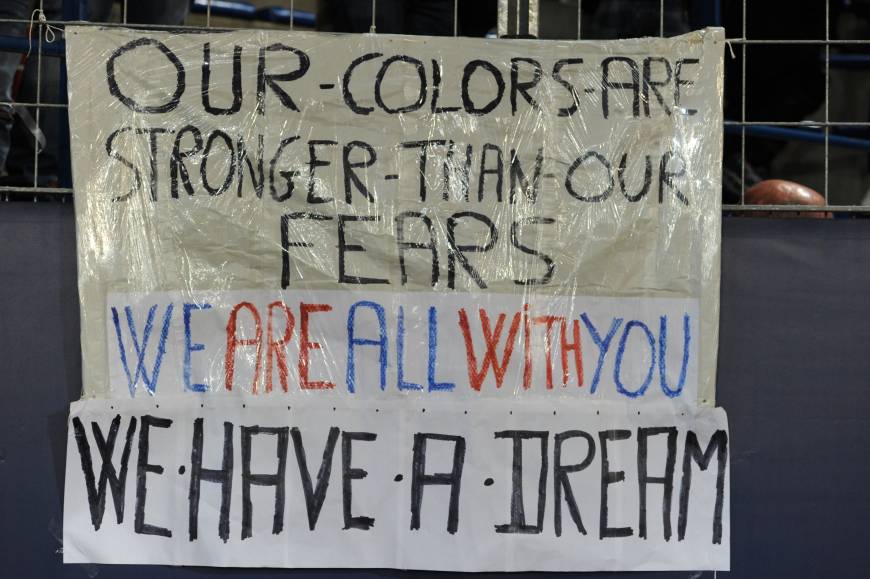 OUR-COLORS-ARE
STRONGER-THAN-OUR
FEARS
WE ARE ALL WiTH YOU
WE·HAVE·A·DREAM